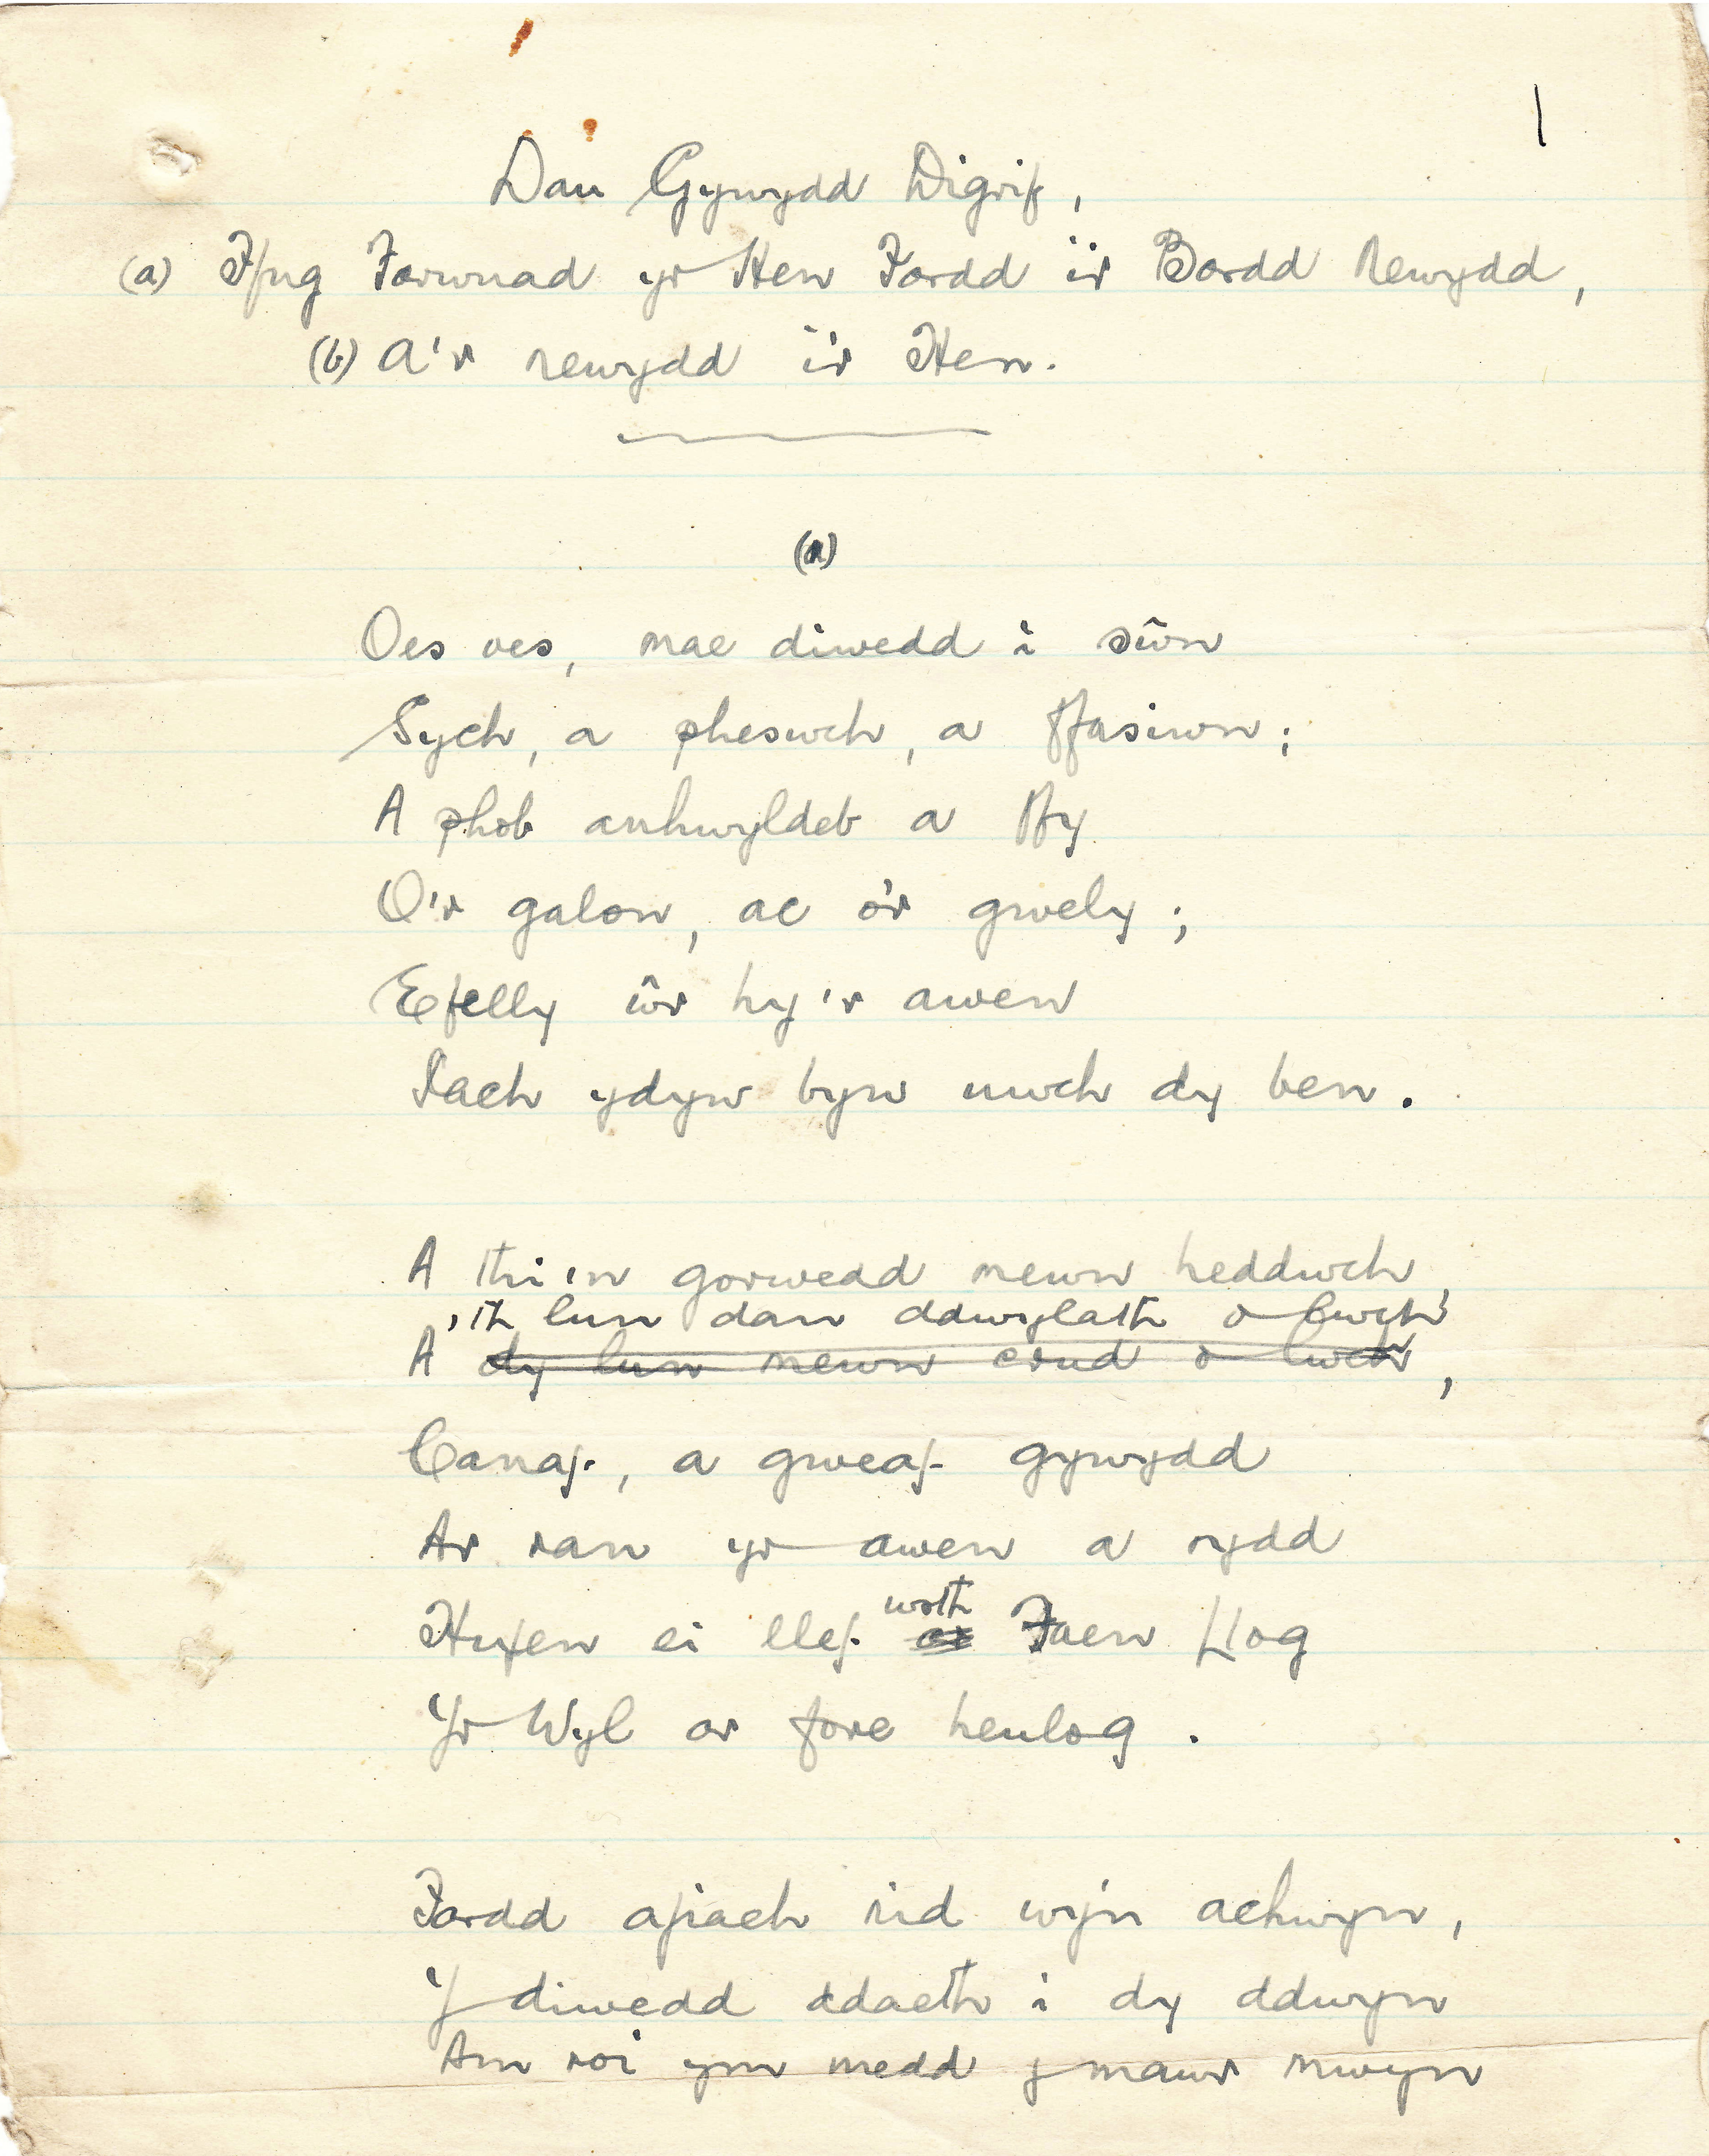 1
Dau Gywydd Digrif,
(a) Ffug Farwnad yr Hen Fardd i'r Bardd Newydd,
(b) A'r newydd i'r Hen.
(a)
Oes oes, mae diwedd i sŵn
Sych, a pheswch, a ffasiwn;
A phob anhwyldeb a ffy
O'r galon, ac o'r gwely;
Efelly ŵr hy'r awen
Iach ydyw byw uwch dy ben.
A thi'n gorwedd mewn heddwch,
'th lun dan ddwylath o lwch
A dy lun mewn crud o lwch,
Canaf, a gweaf gywydd
Ar ran yr awen a rydd
wrth
Hufen ei llef ar Faen Llog
Yr Wyl ar fore heulog.
Fardd afiach nid wy'n achwyn,
Y diwedd ddaeth i dy ddwyn
Am roi ym medd y mawr mwyn